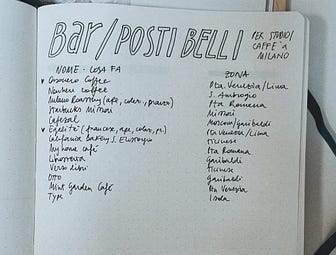 Bar/POSTI BELLI
PER STUDIO/
CAFFÈ A
MILANO
NOME - COSA FA
ZONA
Orsonero Coffee
Pta. Venezia/Lima
Nowhere coffee
S. Ambrogio
Milano Roastery (ape, colaz., pranzo)
Pta Romana
Starbucks Missori
Missori
Cafezal
Moscova/Garibaldi
Égalité (francese, ape, colaz., pr.)
Pta Venezia/Lima
California Bakery S. Eustorgio
Ticinese
My home café
Pta Romana
Librosteria
Garibaldi
Verso libri
Ticinese
OTTO
Garibaldi
Mint Garden Café
Pta Venezia
Type
Isola